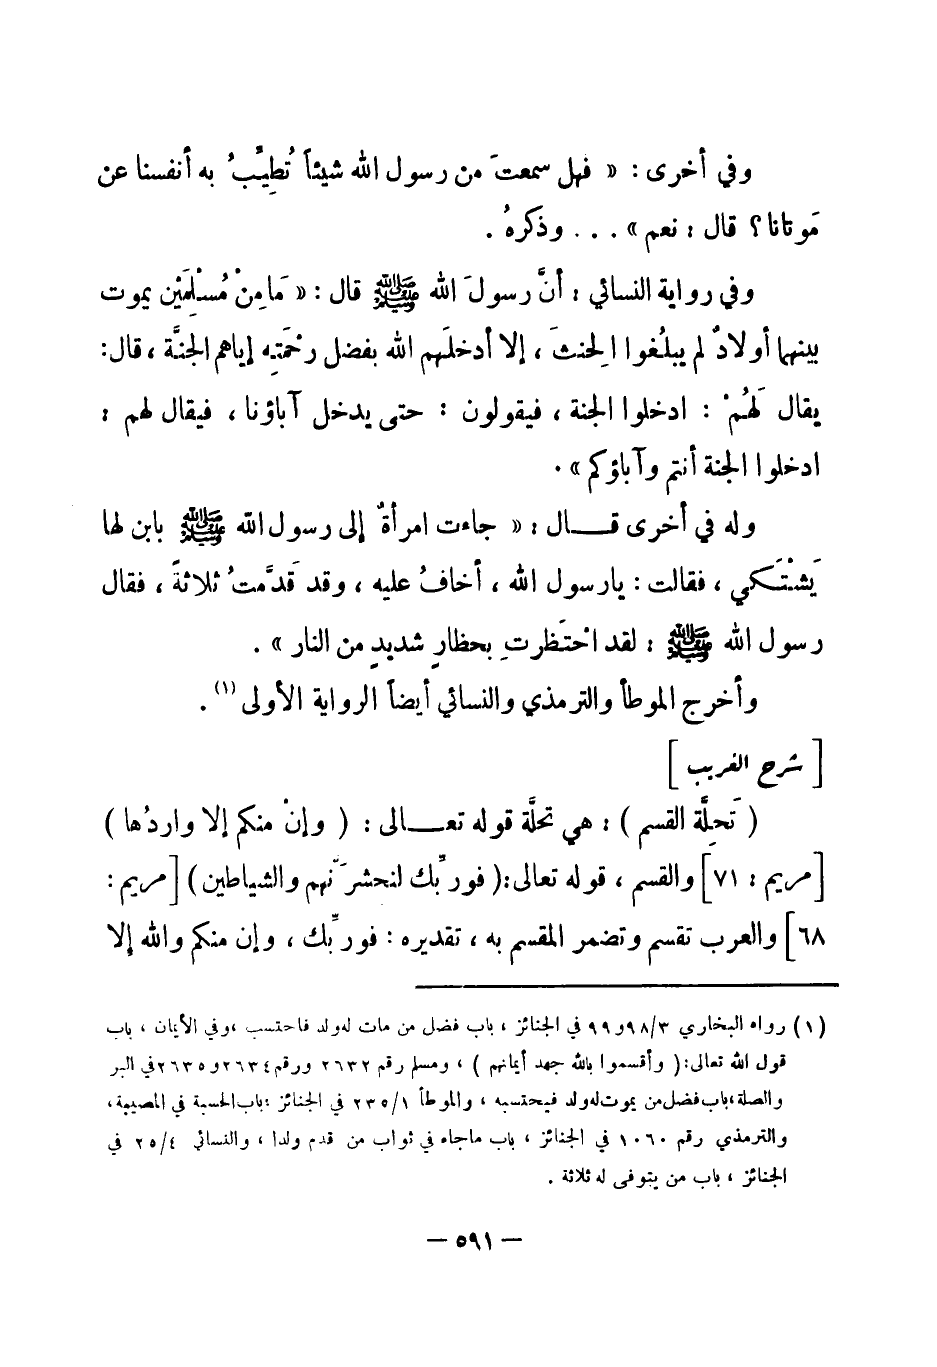 وفي أخرى : « فهل سمعتَ من رسول الله شيئاً تُطيِّبُ به أنفسنا عن
مَوتانا ؟ قال : نعم » . . . وذكرهُ .
وفي رواية النسائي : أنَّ رسولَ الله ﷺ قال : « مَا مِنْ مُسْلِمَيْنِ يموت
بينهما أولادٌ لم يبلُغوا الحِنثَ ، إلا أدخلَهم الله بفضل رحْمَتِهِ إياهم الجنَّة ، قال :
يقال لَهُمْ : ادخلوا الجنة ، فيقولون : حتى يدخل آباؤنا ، فيقال لهم :
ادخلوا الجنة أنتم وآباؤكم » .
وله في أخرى قـــال : « جاءت امرأةٌ إلى رسول الله ﷺ بابن لها
يَشْتَـكي ، فقالت : يارسول الله ، أخافُ عليه ، وقد قَدَّمتُ ثلاثةً ، فقال
رسول الله ﷺ : لقد احْتَظَرتِ بحظارٍ شديدٍ من النار » .
وأخرج الموطأ والترمذي والنسائي أيضاً الرواية الأولى (١) .
[ شرح الغريب ]
( تَحِلَّة القسم ) : هي تحلَّة قوله تعـــالى : ( وإنْ منكم إلا واردُها )
[ مريم : ٧١ ] والقسم ، قوله تعالى : ( فوربِّك لنحشرَنَّهم والشياطين ) [ مريم :
٦٨ ] والعرب تقسم وتضمر المقسم به ، تقديره : فوربِّك ، وإن منكم والله إلا
(١) رواه البخاري ٩٨/٣ و ٩٩ في الجنائز ، باب فضل من مات له ولد فاحتسب ، وفي الأيمان ، باب
قول الله تعالى : ( وأقسموا بالله جهد أيمانهم ) ، ومسلم رقم ٢٦٣٢ ورقم ٢٦٣٤ و ٢٦٣٥ في البر
والصلة ، باب فضل من يموت له ولد فيحتسبه ، والموطأ ٢٣٥/١ في الجنائز : باب الحسبة في المصيبة ،
والترمذي رقم ١٠٦٠ في الجنائز ، باب ماجاء في ثواب من قدم ولدا ، والنسائي ٢٥/٤ في
الجنائز ، باب من يتوفى له ثلاثة .
— ٥٩١ —